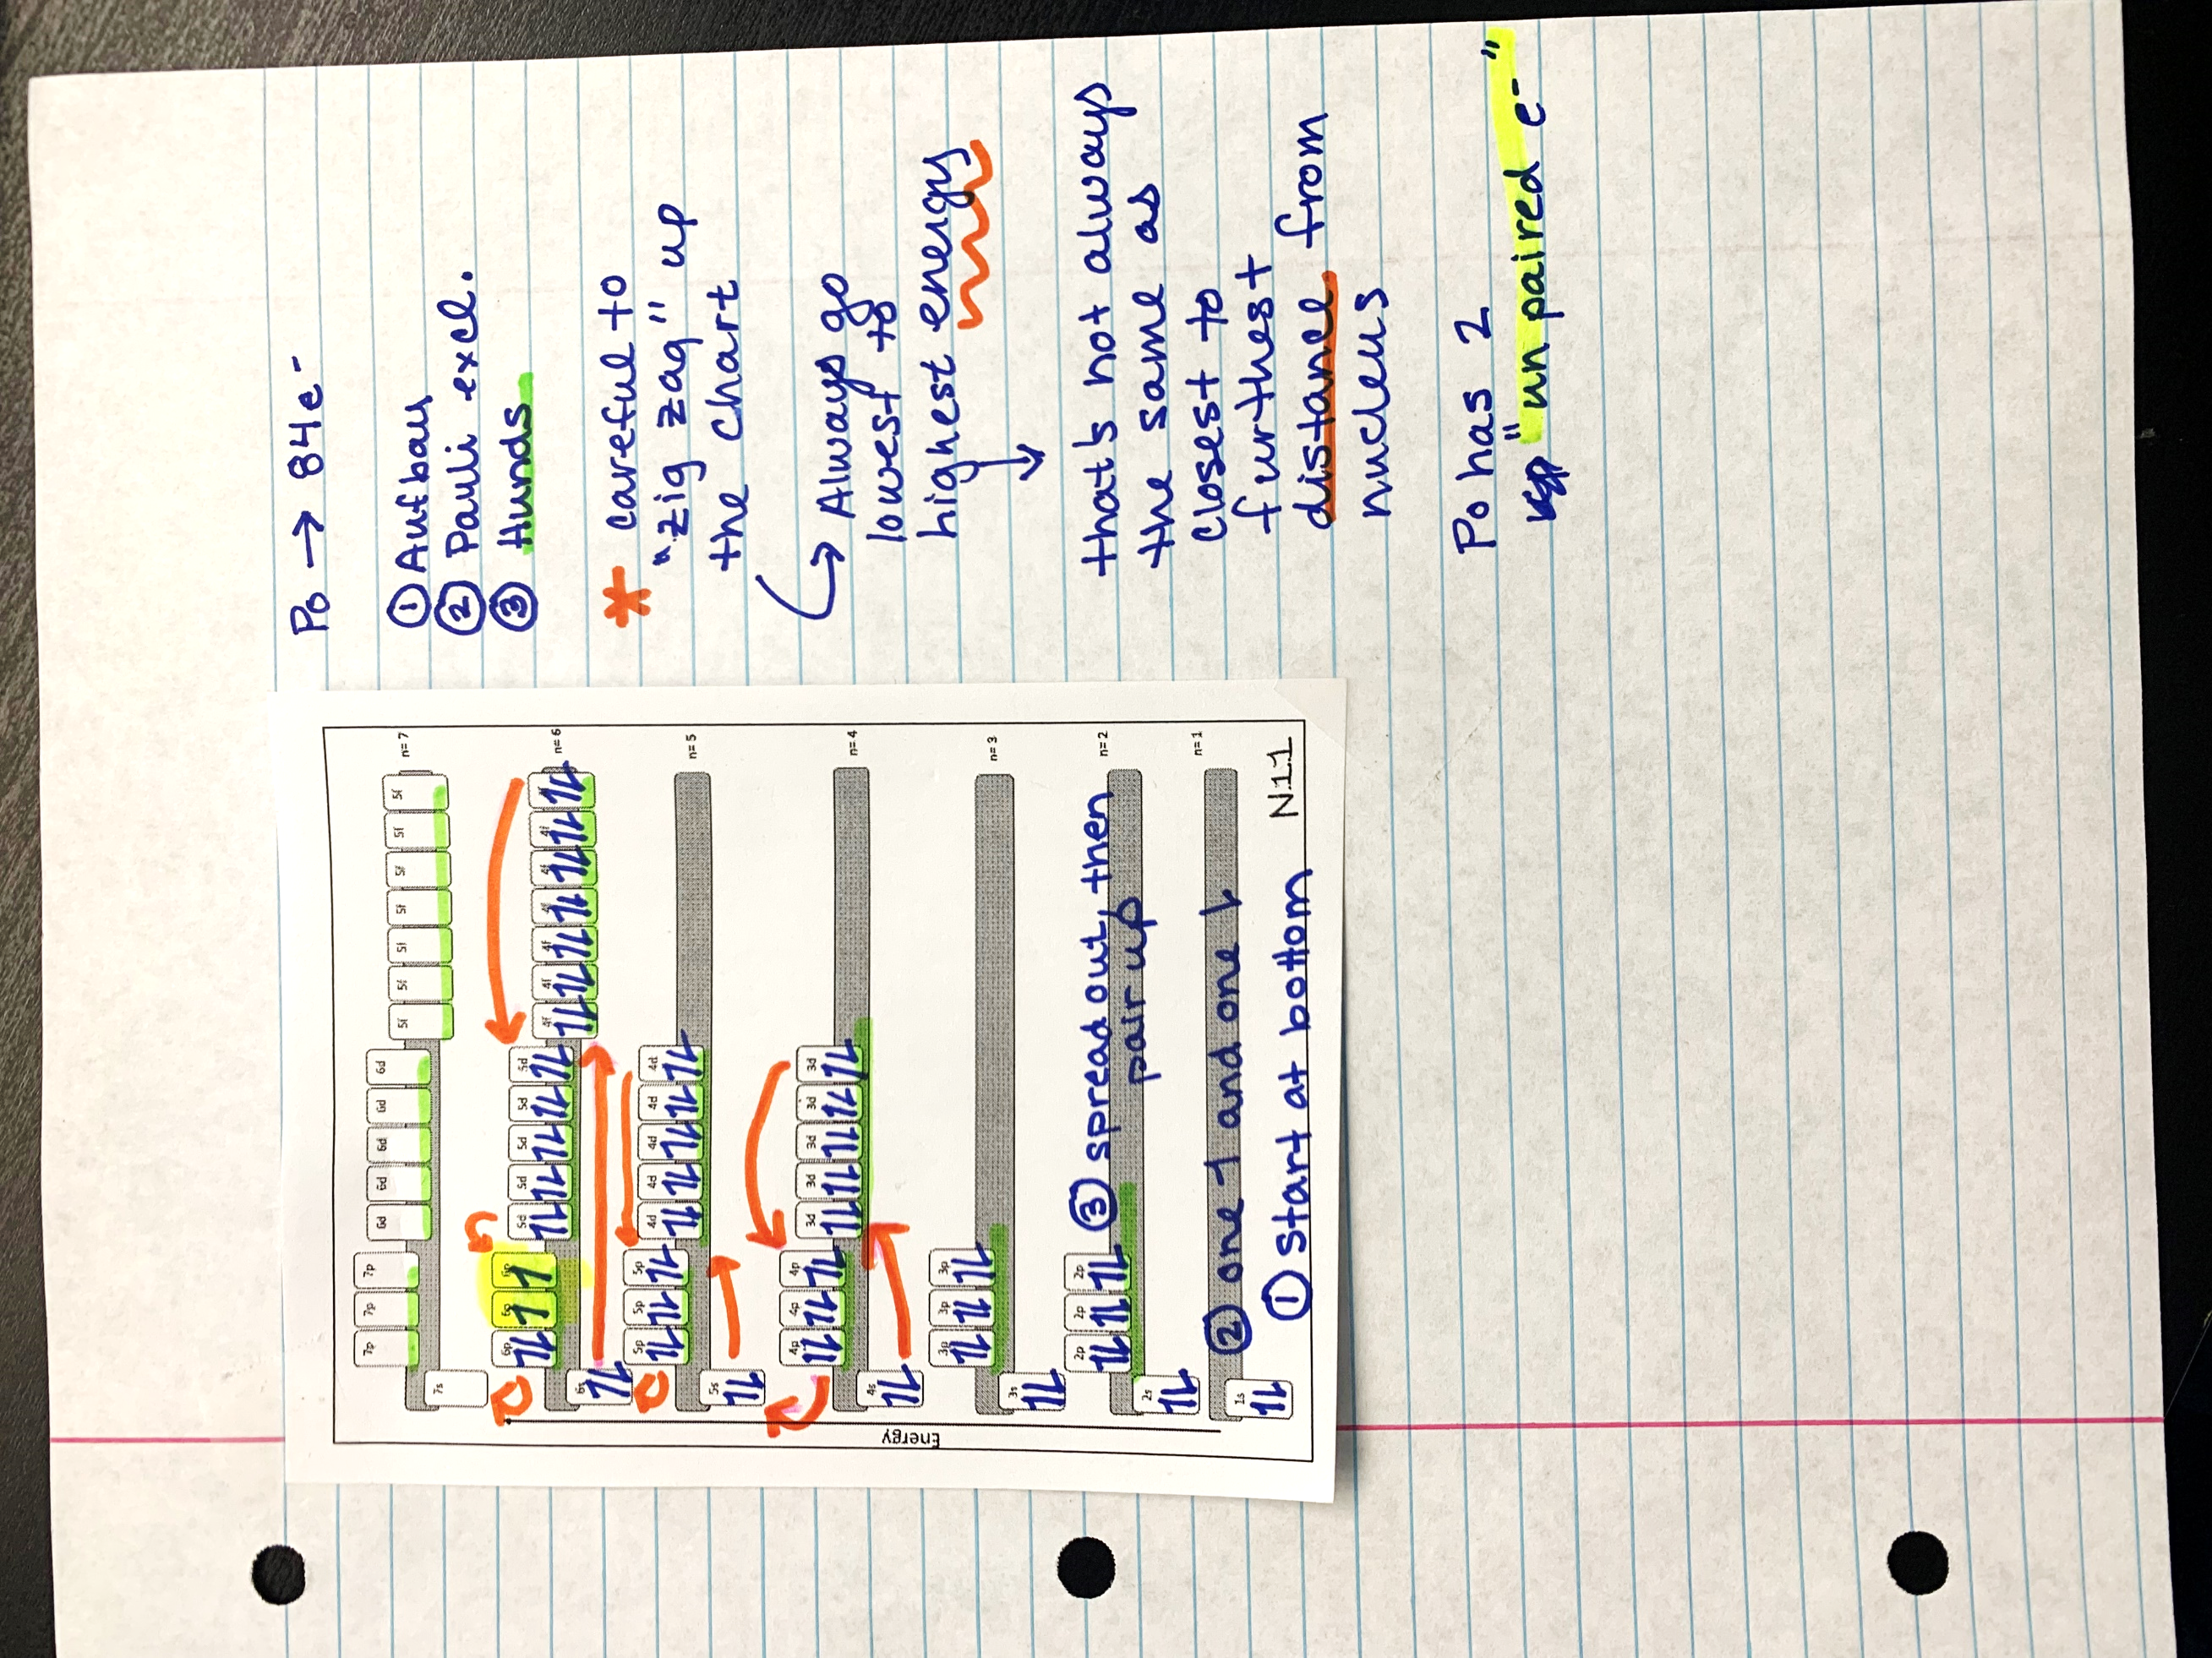 Po → 84e-
① Aufbau
② Pauli excl.
③ Hunds
* careful to
"zig zag" up
the chart
↳ Always go
lowest to
highest energy
↓
that's not always
the same as
closest to
furthest
distance from
nucleus
Po has 2
"unpaired e-"
7p 7p 7p 6d 6d 6d 6d 6d 5f 5f 5f 5f 5f 5f 5f n=7
7s
6p 6p 6p 5d 5d 5d 5d 5d 4f 4f 4f 4f 4f 4f n=6
6s
5p 5p 5p 4d 4d 4d 4d 4d n=5
5s
Energy
4p 4p 4p 3d 3d 3d 3d 3d n=4
4s
3p 3p 3p n=3
3s
2p 2p 2p n=2
③ spread out, then
pair up
2s
n=1
② one ↿ and one ⇂
1s
① start at bottom
N11